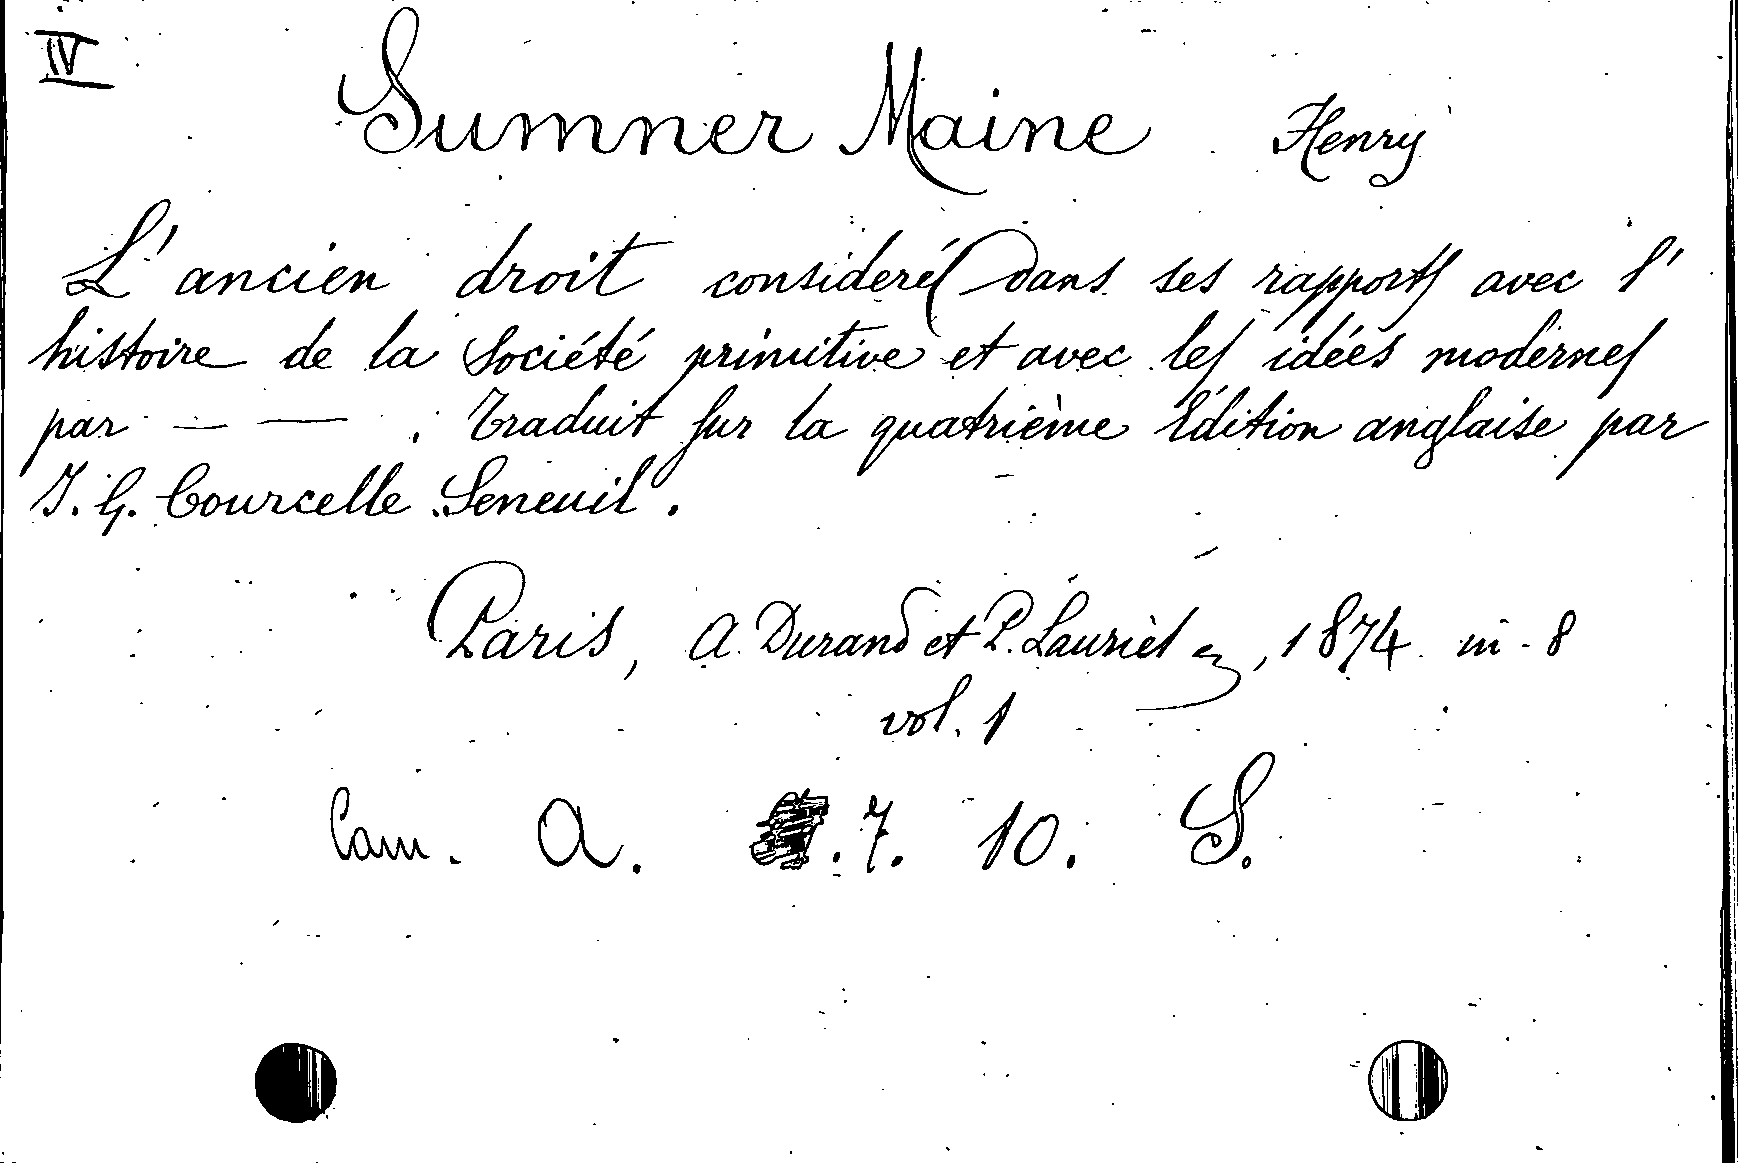 IV
Sumner Maine Henry
L'ancien droit consideré dans ses rapports avec l'
histoire de la Société primitive et avec les idées modernes
par — — . Traduit sur la quatrième Édition anglaise par
J. G. Courcelle Seneuil.
Paris, A. Durand et P. Lauriel, 1874 in-8
vol. 1
Cam. A. .7. 10. S.